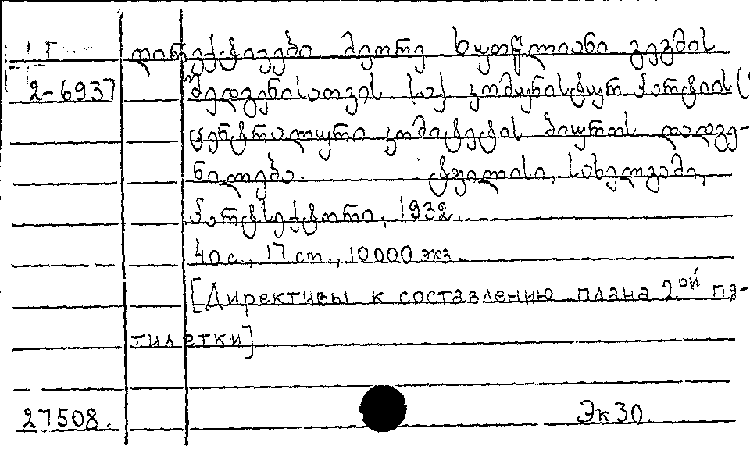 Г დირექტივები მეორე ხუთწლიანი გეგმის
2-6937 შედგენისათვის საქ კომუნისტურ პარტიის (
ცენტრალური კომიტეტის ბიუროს დადგე-
ნილება. ტფილისი, სახელგამი,
პარტსექტორი, 1932.
40 с., 17 см., 10000 экз.
[Директивы к составлению плана 2ой пя-
тилетки]
27508. Эк30.